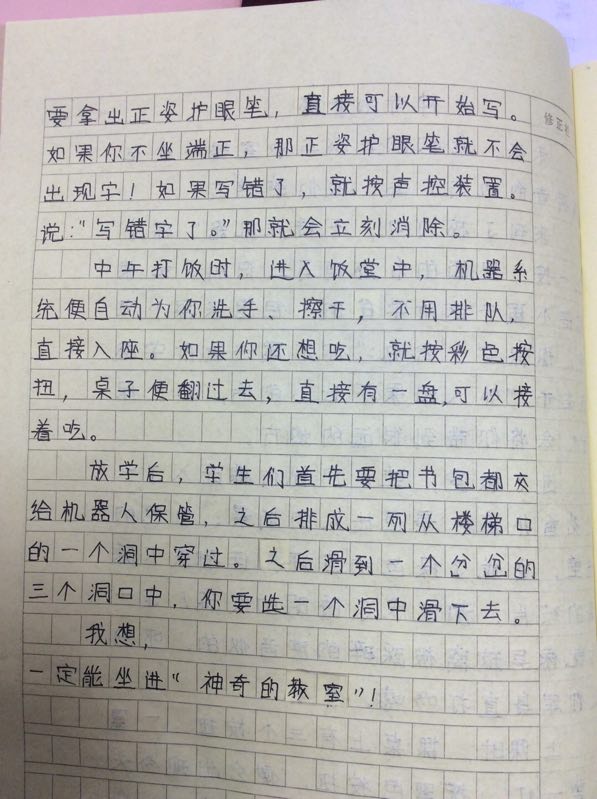 要拿出正姿护眼笔，直接可以开始写。
如果你不坐端正，那正姿护眼笔就不会
出现字！如果写错了，就按声控装置。
说："写错字了。"那就会立刻消除。
中午打饭时，进入饭堂中，机器系
统便自动为你洗手、擦干，不用排队，
直接入座。如果你还想吃，就按彩色按
扭，桌子便翻过去，直接有一盘，可以接
着吃。
放学后，学生们首先要把书包都交
给机器人保管，之后排成一列从楼梯口
的一个洞中穿过。之后滑到一个岔岔的
三个洞口中，你要选一个洞中滑下去。
我想，
一定能坐进"神奇的教室"！
修正栏